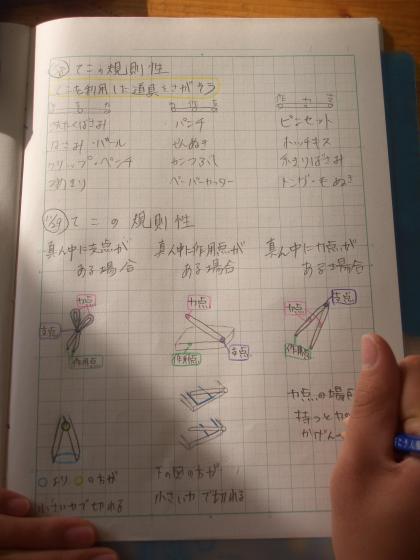 てこの規則性
てこを利用した道具をさがそう
作 支 力
支 作 力
作 力 支
パンチ
ピンセット
はさみ・バール
せんぬき
ホッチキス
クリップ・ペンチ
カンつぶし
糸きりばさみ
つめきり
ペーパーカッター
トング・毛ぬき
11/29 てこの規則性
真ん中に支点がある場合
真ん中に作用点がある場合
真ん中に力点がある場合
力点
支点
作用点
力点
作用点
支点
力点
支点
作用点
力点の場
持つと力の
かげん
○より○の方が
小さい力で切れる
下の図の方が
小さい力で切れる